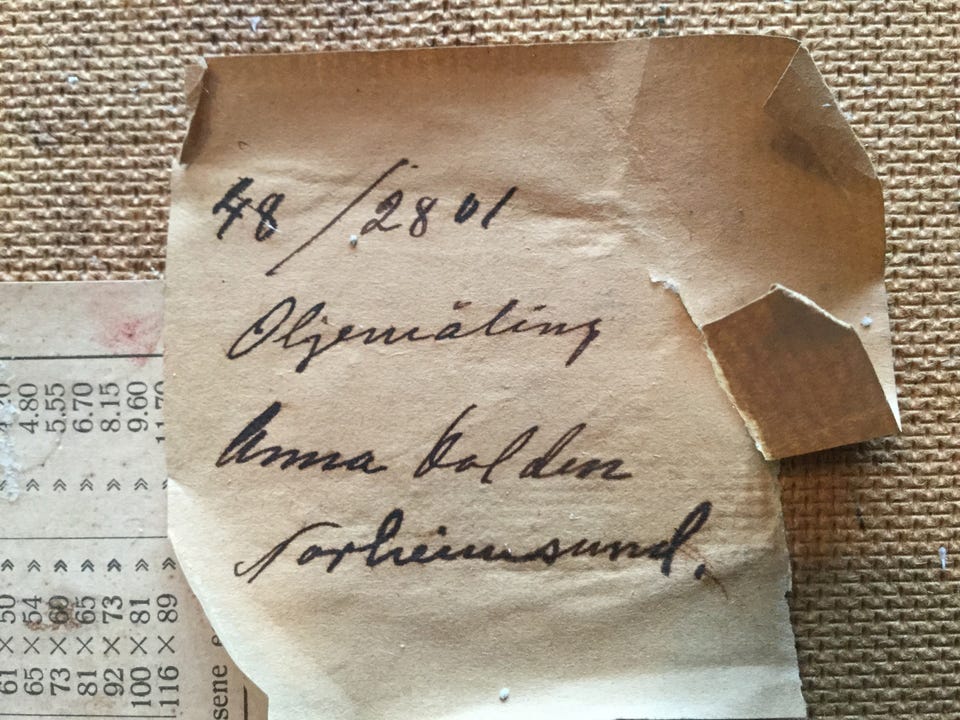 48/2801
Oljemåling
Anna Volden
Norheimsund.
61 × 50 » »
65 × 54 » » 4.80
73 × 60 » » 5.55
81 × 65 » » 6.70
92 × 73 » » 8.15
100 × 81 » » 9.60
116 × 89 » » 11.70
sene